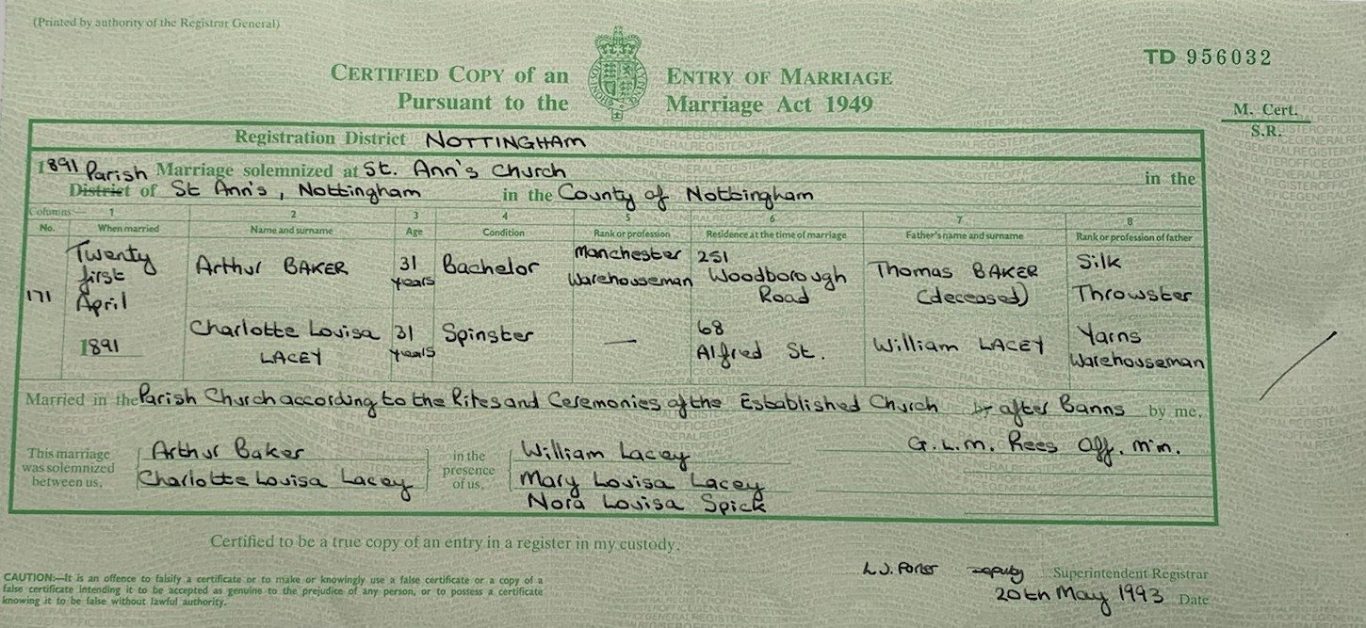 (Printed by authority of the Registrar General)
TD 956032
CERTIFIED COPY of an ENTRY OF MARRIAGE
Pursuant to the Marriage Act 1949
M. Cert.
S.R.
Registration District NOTTINGHAM
1891 Parish Marriage solemnized at St. Ann's Church in the
District of St Ann's, Nottingham in the County of Nottingham
Columns:— 1 2 3 4 5 6 7 8
No. When married Name and surname Age Condition Rank or profession Residence at the time of marriage Father's name and surname Rank or profession of father
171 Twenty first April 1891
Arthur BAKER 31 years Bachelor Manchester Warehouseman 251 Woodborough Road Thomas BAKER (deceased) Silk Throwster
Charlotte Louisa LACEY 31 years Spinster — 68 Alfred St. William LACEY Yarns Warehouseman
Married in the Parish Church according to the Rites and Ceremonies of the Established Church by after Banns by me,
This marriage was solemnized between us,
Arthur Baker
Charlotte Louisa Lacey
in the presence of us,
William Lacey
Mary Louisa Lacey
Nora Louisa Spick
G.L.M. Rees Off. Min.
Certified to be a true copy of an entry in a register in my custody.
CAUTION:—It is an offence to falsify a certificate or to make or knowingly use a false certificate or a copy of a
false certificate intending it to be accepted as genuine to the prejudice of any person, or to possess a certificate
knowing it to be false without lawful authority.
L.J. Porter Deputy Superintendent Registrar
20th May 1993 Date